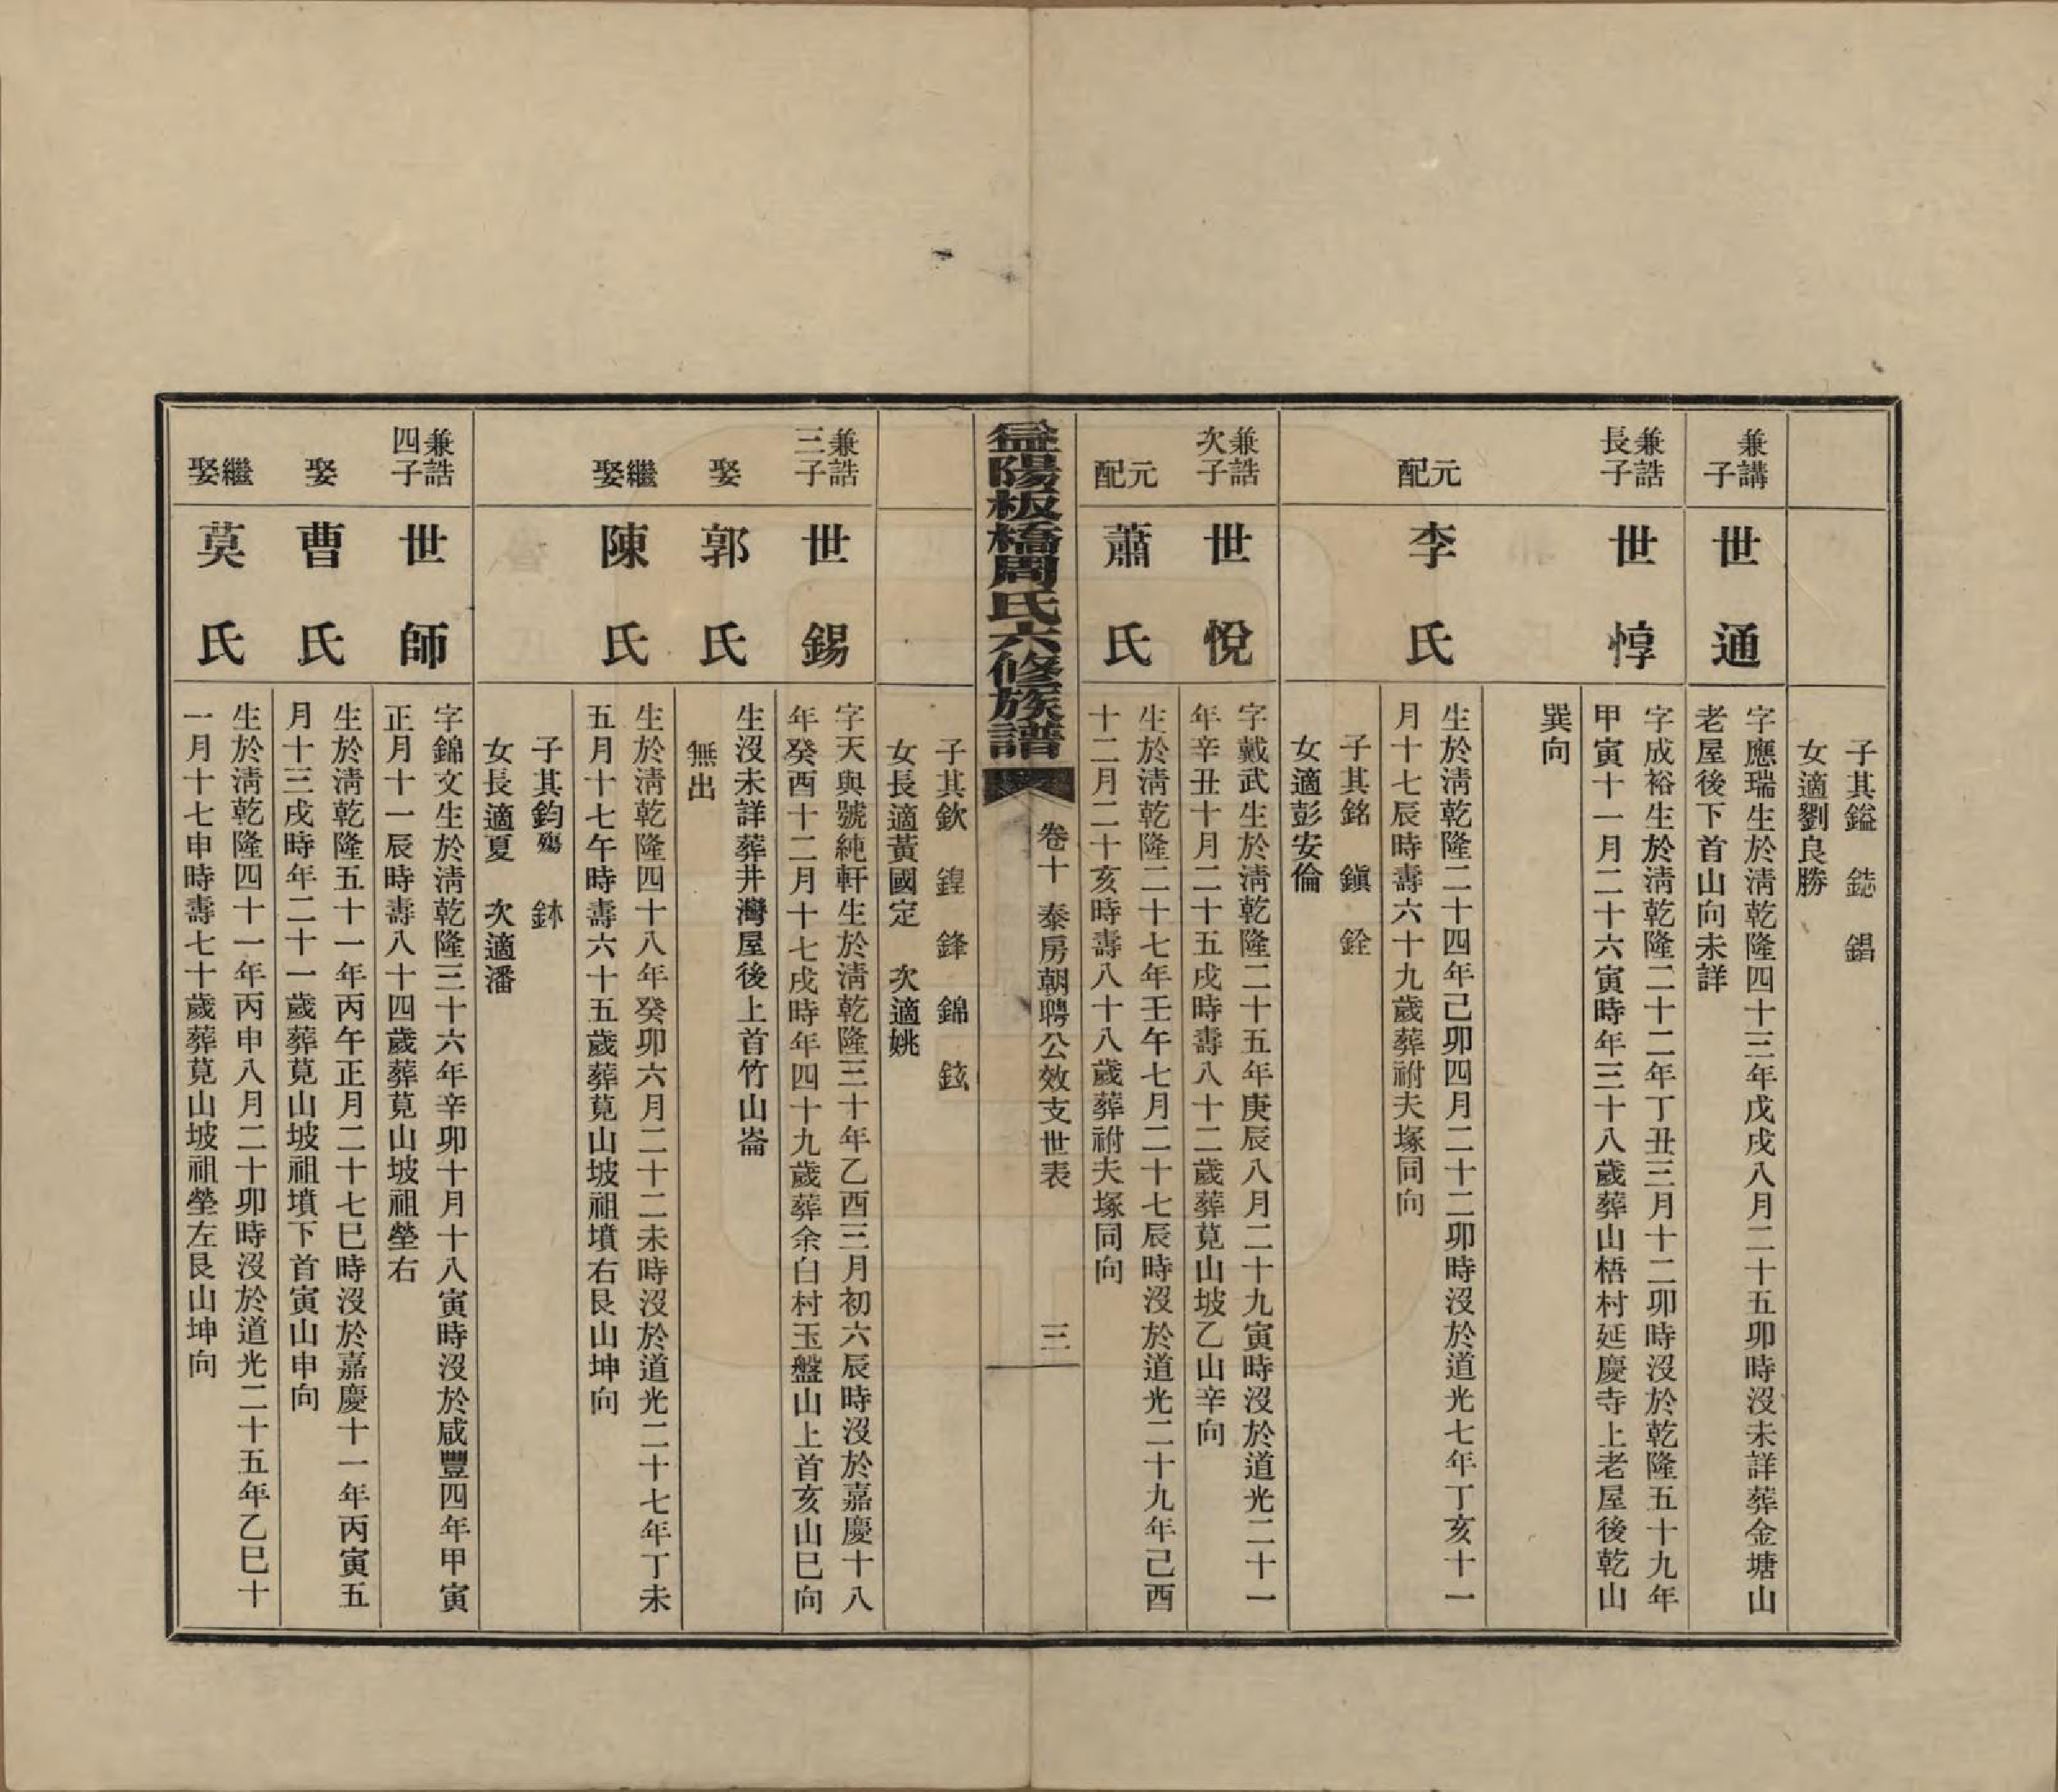 子其鎰 鋕 錩
女適劉良勝
兼講
子
世通
字應瑞生於淸乾隆四十三年戊戌八月二十五卯時沒未詳葬金塘山
老屋後下首山向未詳
兼誥
長子
世惇
字成裕生於淸乾隆二十二年丁丑三月十二卯時沒於乾隆五十九年
甲寅十一月二十六寅時年三十八歲葬山梧村延慶寺上老屋後乾山
巽向
元配
李氏
生於淸乾隆二十四年己卯四月二十二卯時沒於道光七年丁亥十一
月十七辰時壽六十九歲葬祔夫塚同向
子其銘 鎭 銓
女適彭安倫
兼誥
次子
世悅
字戴武生於淸乾隆二十五年庚辰八月二十九寅時沒於道光二十一
年辛丑十月二十五戌時壽八十二歲葬莧山坡乙山辛向
元配
蕭氏
生於淸乾隆二十七年壬午七月二十七辰時沒於道光二十九年己酉
十二月二十亥時壽八十八歲葬祔夫塚同向
益陽板橋周氏六修族譜
卷十 泰房朝聘公效支世表
三
子其欽 鍠 鋒 錦 鉉
女長適黃國定 次適姚
兼誥
三子
世錫
字天與號純軒生於淸乾隆三十年乙酉三月初六辰時沒於嘉慶十八
年癸酉十二月十七戌時年四十九歲葬余白村玉盤山上首亥山巳向
娶
郭氏
生沒未詳葬井灣屋後上首竹山崙
無出
繼娶
陳氏
生於淸乾隆四十八年癸卯六月二十二未時沒於道光二十七年丁未
五月十七午時壽六十五歲葬莧山坡祖墳右艮山坤向
子其鈞殤 鉢
女長適夏 次適潘
兼誥
四子
世師
字錦文生於淸乾隆三十六年辛卯十月十八寅時沒於咸豐四年甲寅
正月十一辰時壽八十四歲葬莧山坡祖塋右
娶
曹氏
生於淸乾隆五十一年丙午正月二十七巳時沒於嘉慶十一年丙寅五
月十三戌時年二十一歲葬莧山坡祖墳下首寅山申向
繼娶
莫氏
生於淸乾隆四十一年丙申八月二十卯時沒於道光二十五年乙巳十
一月十七申時壽七十歲葬莧山坡祖塋左艮山坤向